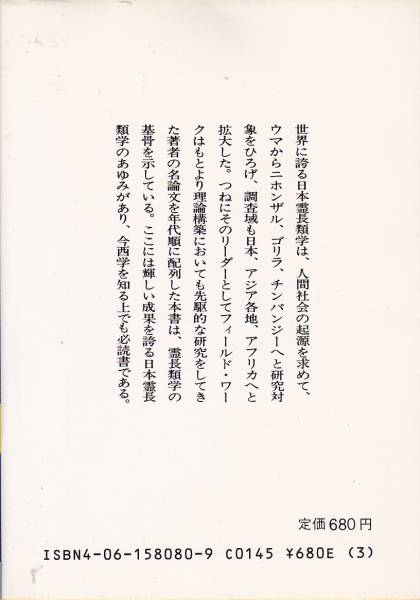 世界に誇る日本霊長類学は、人間社会の起源を求めて、
ウマからニホンザル、ゴリラ、チンパンジーへと研究対
象をひろげ、調査域も日本、アジア各地、アフリカへと
拡大した。つねにそのリーダーとしてフィールド・ワー
クはもとより理論構築においても先駆的な研究をしてき
た著者の名論文を年代順に配列した本書は、霊長類学の
基骨を示している。ここには輝しい成果を誇る日本霊長
類学のあゆみがあり、今西学を知る上でも必読書である。
定価680円
ISBN4-06-158080-9 C0145 ¥680E (3)